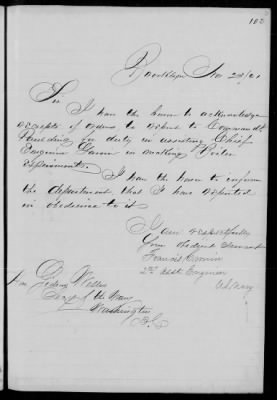 100
Brooklyn Nov 23/61
Sir
I have the honor to acknowledge
receipt of orders to report to Commandt
Paulding for duty in assisting Chief
Engineer in making Boiler
experiments.
I have the honor to inform
the department that I have reported
in obedience to it
I am respectfully
Your obedient Servant
Francis
2nd Asst Engineer
U.S. Navy
Hon Gideon Welles
Secy of the Navy
Washington
D.C